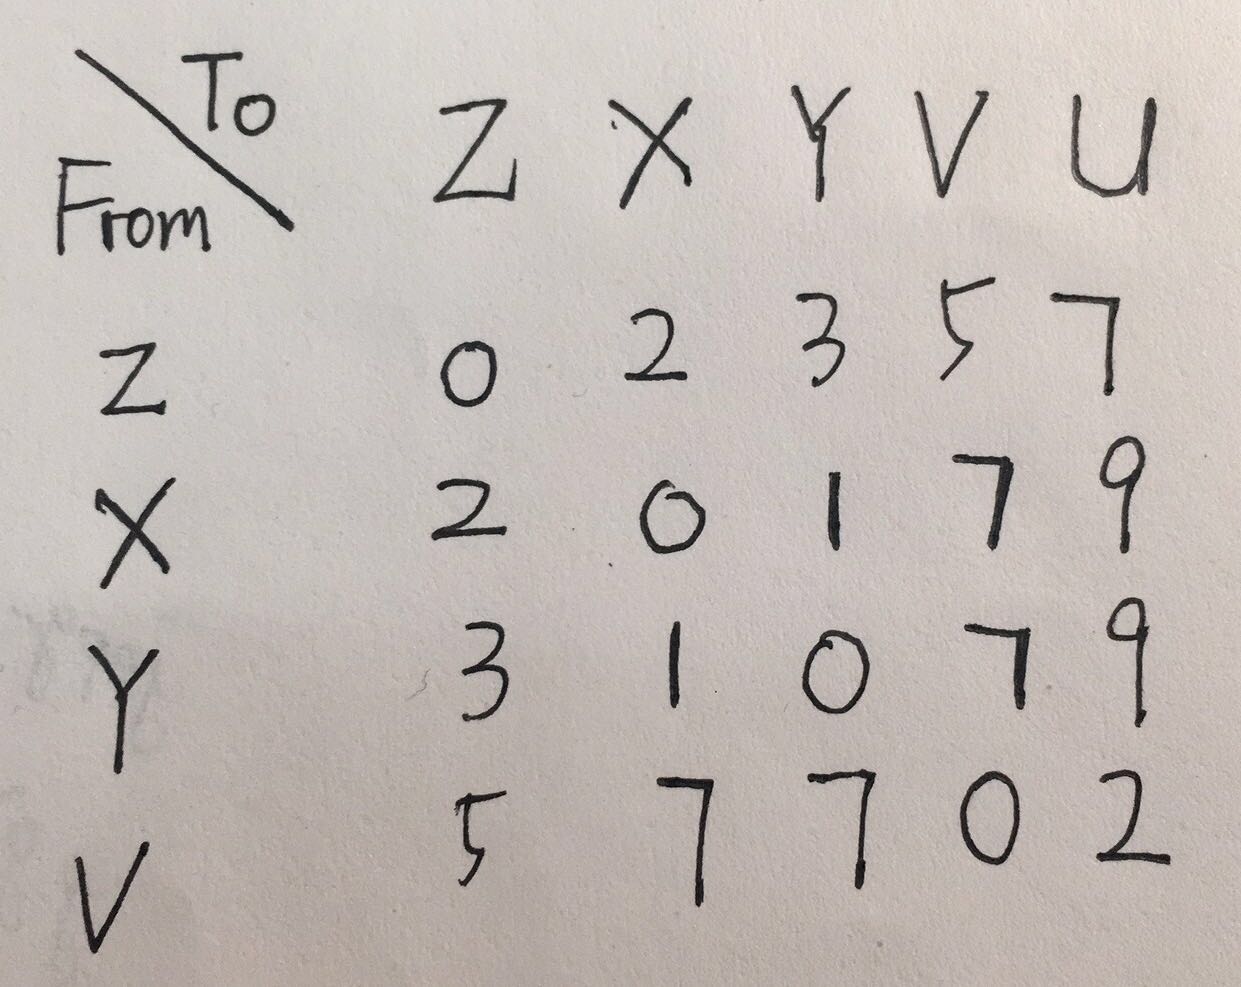 To
From Z X Y V U
Z 0 2 3 5 7
X 2 0 1 7 9
Y 3 1 0 7 9
V 5 7 7 0 2